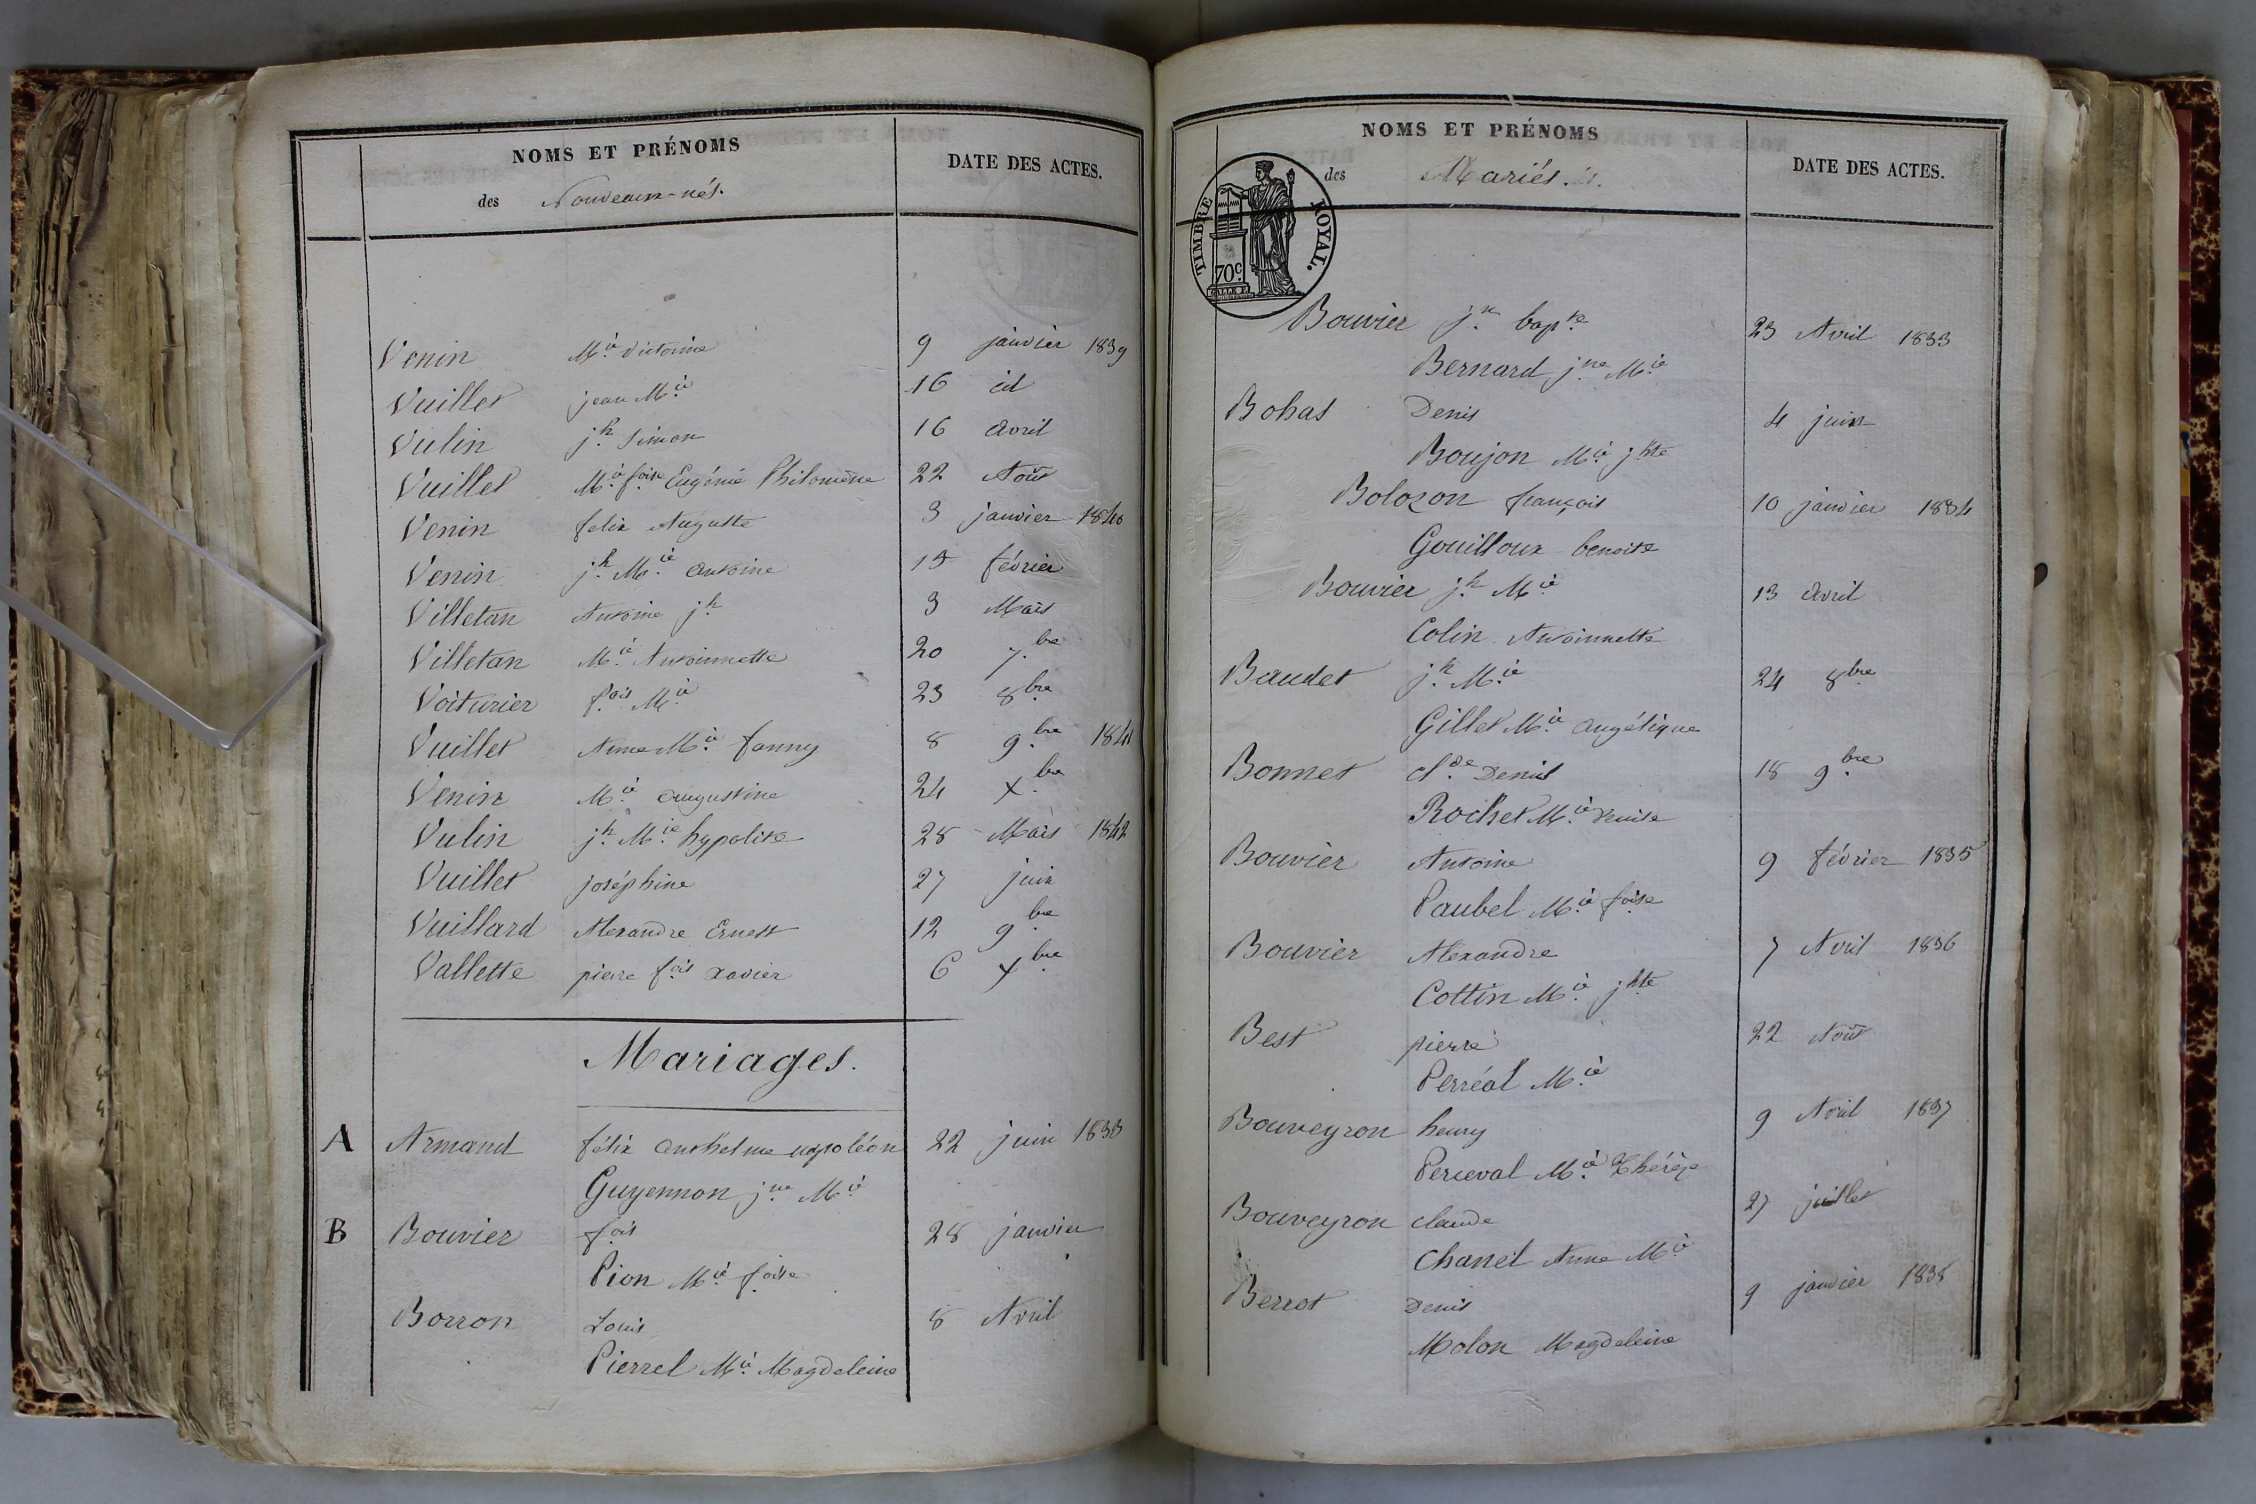 NOMS ET PRÉNOMS DATE DES ACTES.
des Nouveaux-nés.
Venin Mie Victorine 9 janvier 1839
Vuillet jean Mie 16 id
Vulin jh Simon 16 avril
Vuillet Mie foise Eugénie Philomène 22 Août
Venin felix Auguste 3 janvier 1840
Venin jh Mie antoine 15 février
Villetan Antoine jh 3 Mars
Villetan Mie Antoinnette 20 7bre
Voiturier fois Mie 23 8bre
Vuillet Anne Mie fanny 8 9bre 1841
Venin Mie augustine 24 Xbre
Vulin jh Mie hypolite 28 Mars 1842
Vuillet joséphine 27 juin
Vuillard Alexandre Ernest 12 9bre
Vallette pierre fois xavier 6 Xbre
Mariages.
A Armand félix anthelme napoléon 22 juin 1833
Guyennon jne Mie
B Bouvier fois 28 janvier
Pion Mie foise
Borron Louis 8 Avril
Pierrel Mie Magdeleine
NOMS ET PRÉNOMS DATE DES ACTES.
des Mariés.
TIMBRE ROYAL.
70c.
Bouvier jn bapte 23 Avril 1833
Bernard jne Mie
Bohas Denis 4 juin
Boujon Mie jhte
Bolozon françois 10 janvier 1834
Gouilloux benoite
Bouvier jh Mie 13 avril
Colin Antoinnette
Baudet jh Mie 24 8bre
Gillet Mie angélique
Bonnet Clde Denis 18 9bre
Rochet Mie Denise
Bouvier Antoine 9 février 1835
Paubel Mie foise
Bouvier Alexandre 7 Avril 1836
Cottin Mie jhte
Best pierre 22 Août
Perréal Mie
Bouveyron henry 9 Avril 1837
Perceval Mie Thérèze
Bouveyron claude 27 juillet
Chanel Anne Mie
Berrot Denis 9 janvier 1838
Molon Magdeleine